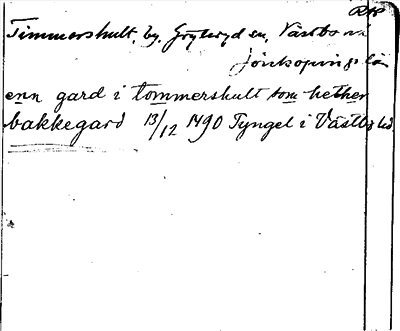 RAP
Timmershult, by. Gryteryd sn, Västbo
Jönköpings län
enn gard i tommershult som hether
bakkegard 13/12 1490 Tyngel i Västbo